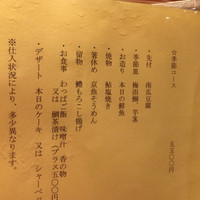 ☆季節コース 五五〇〇円
・先付 南瓜豆腐
・季節皿 梅雨鯛、芋茎
・お造り 本日の鮮魚
・焼物 鮎塩焼き
・箸休め 京魚そうめん
・留物 鱧もろこし揚げ
・お食事 わっぱご飯 味噌汁 香の物
又は 鯛茶漬け(プラス五〇〇円
・デザート 本日のケーキ 又は シャーベ
※仕入状況により、多少異なります。